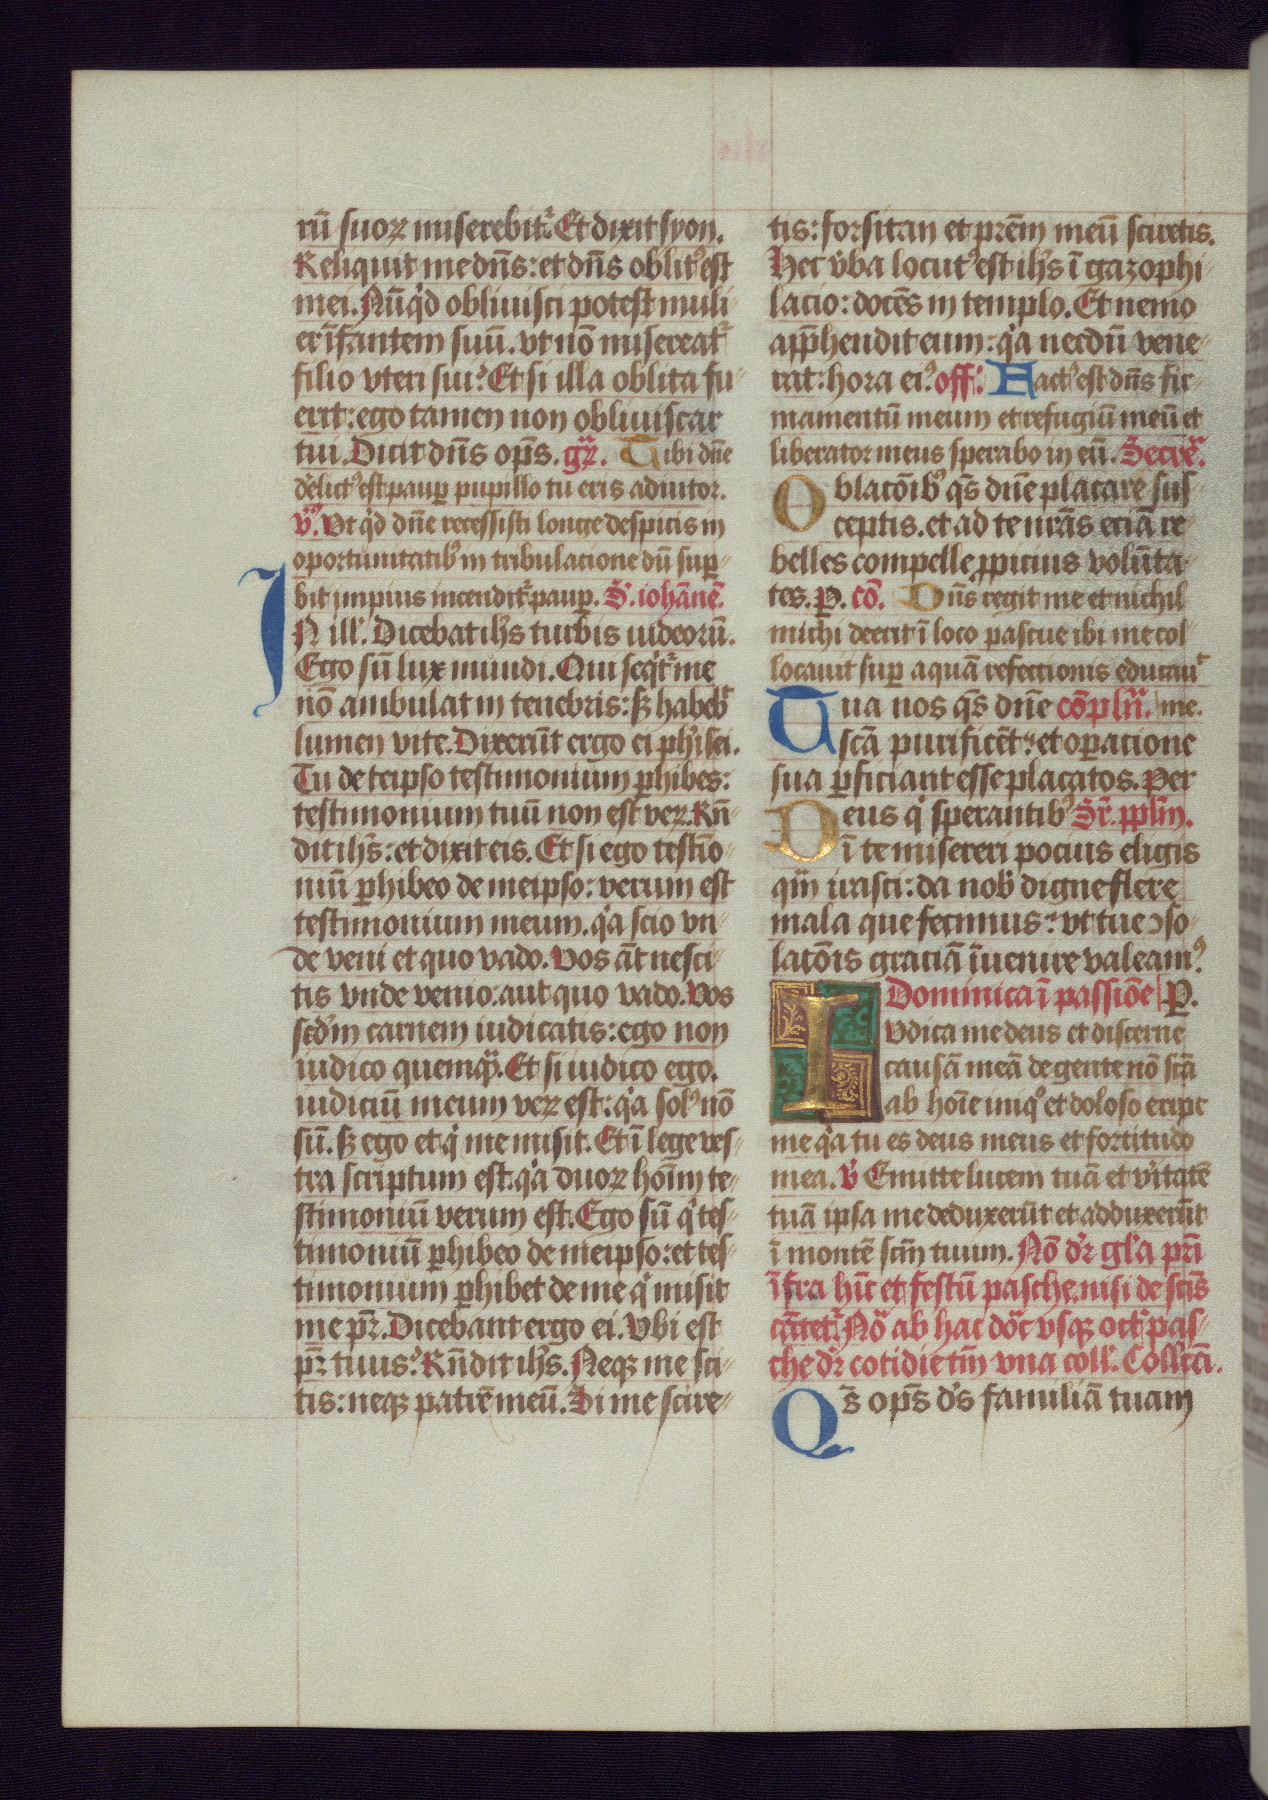 rū suoꝝ miserebit᷑. Et dixit syon.
Reliquit me dn̄s: et dn̄s oblitꝰ est
mei. Nūq'd obliuisci potest muli-
er īfantem suū. vt nō misereat᷑
filio vteri sui? Et si illa oblita fu-
erit: ego tamen non obliuiscar
tui. Dicit dn̄s op̄s. gr̄. Tibi dn̄e
delictꝰ est paup̲ pupillo tu eris adiutor.
v̄. Vt q'd dn̄e recessisti longe despicis in
oportunitatibꝰ in tribulacione dū sup̲-
bit impius incendit᷑ paup̲. S. iohānē.
IN ill'. Dicebat ih̄s turbis iudeorū.
Ego sū lux mundi. Qui seq'tᷣ me
nō ambulat in tenebris: sꝫ habeb᷑
lumen vite. Dixerūt ergo ei ph'isei.
Tu de teipso testimonium ꝑhibes:
testimonium tuū non est veꝝ. Rn̄-
dit ih̄s: et dixit eis. Et si ego testīo-
niū ꝑhibeo de meipso: verum est
testimonium meum. q'a scio vn-
de veni et quo vado. Vos āt nesci-
tis vnde venio: aut quo vado. Vos
scd'm carnem iudicatis: ego non
iudico quemqᷓ. Et si iudico ego.
iudiciū meum veꝝ est: q'a solꝰ nō
sū. sꝫ ego et q' me misit. Et ī lege ves-
tra scriptum est. q'a duoꝝ hoīm te-
stimoniū verum est. Ego sū q' tes-
timoniū ꝑhibeo de meipso: et tes-
timonium ꝑhibet de me q' misit
me pr̄. Dicebant ergo ei. Vbi est
pr̄ tuus? Rn̄dit ih̄s. Neqꝫ me sci-
tis: neqꝫ patrē meū. Si me scire-
tis: forsitan et pr̄em meū sciretis.
Hec v̓ba locutꝰ est ih̄s ī gazophi-
lacio: docēs in templo. Et nemo
app̄hendit eum: q'a necdū vene-
rat: hora eiꝰ. off: Factꝰ est dn̄s fir-
mamentū meum et refugiū meū et
liberator meus sperabo in eū. Secrē.
Oblacōibꝰ q̄s dn̄e placare sus-
ceptis. et ad te nr̄as eciā re-
belles compelle ꝓpicius volūta-
tes. P. cō. Dn̄s regit me et nichil
michi deerit ī loco pascue ibi me col-
locauit sup̲ aquā refectionis educau᷑
Tua nos q̄s dn̄e cōplr̄. me.
scā purificēt: et op̲acione
sua ꝑficiant esse placatos. Per
Deus q' sperantibꝰ Sr̄. pplm̄.
ī te misereri pocius eligis
qm̄ irasci: da nob̓ digne flere
mala que fecimus: vt tue ↄso-
lacōis graciā īuenire valeamꝰ.
Dominica ī passiōe P.
Iudica me deus et discerne
causā meā de gente nō scā
ab hoīe iniqᵒ et doloso eripe
me q'a tu es deus meus et fortitudo
mea. v̓ Emitte lucem tuā et v̓itatē
tuā ipsa me deduxerūt et adduxerūt
ī montē scm̄ tuum. Nō d'r gl'a pr̄i
īfra hūc et festū pasche. nisi de scīs
cātet᷑. Nōᵃ ab hac dōc vsqꝫ oct' pas-
che d'r cotidie tm̄ vna coll'. Coll'cā.
Qs̄ op̄s d's familiā tuam